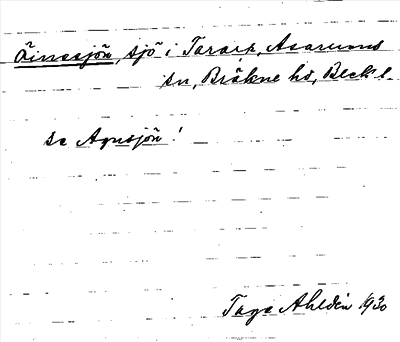 Åinosjön, sjö i Tararp, Asarums
sn, Bräkne hd, Blekl.
se Agnsjön!
Tage Ahldén 1930